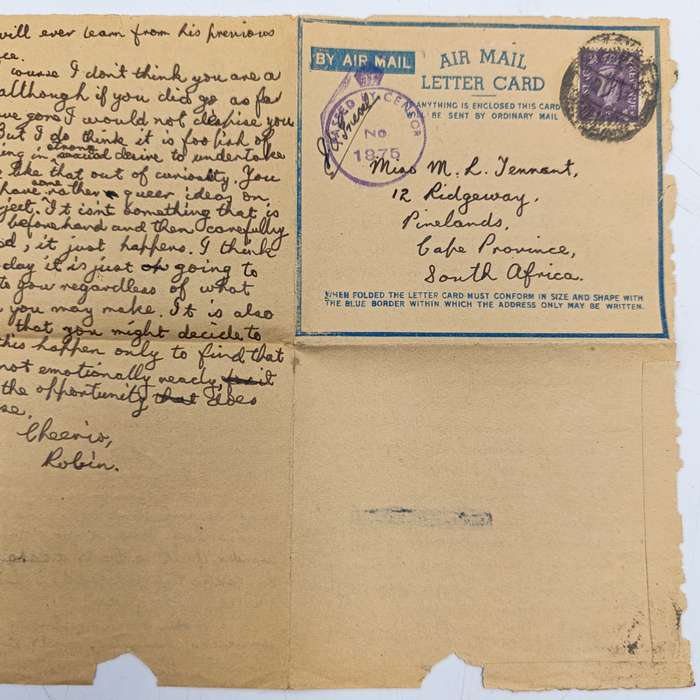 will ever learn from his previous
course I don't think you are a
although if you did go as far
I would not despise you
But I do think it is foolish of
strong
in desire to undertake
like that out of curiosity. You
some
have rather queer ideas on
It isn't something that is
beforehand and then carefully
; it just happens. I think
day it is just or going to
to you regardless of what
you may make. It is also
that you might decide to
this happen only to find that
not emotionally ready, it
the opportunity that does
Cheerio,
Robin.
BY AIR MAIL
AIR MAIL
LETTER CARD
ANYTHING IS ENCLOSED THIS CARD
BE SENT BY ORDINARY MAIL
PASSED BY CENSOR
No
1975
Miss M. L. Tennant,
12 Ridgeway,
Pinelands,
Cape Province,
South Africa.
WHEN FOLDED THE LETTER CARD MUST CONFORM IN SIZE AND SHAPE WITH
THE BLUE BORDER WITHIN WHICH THE ADDRESS ONLY MAY BE WRITTEN.